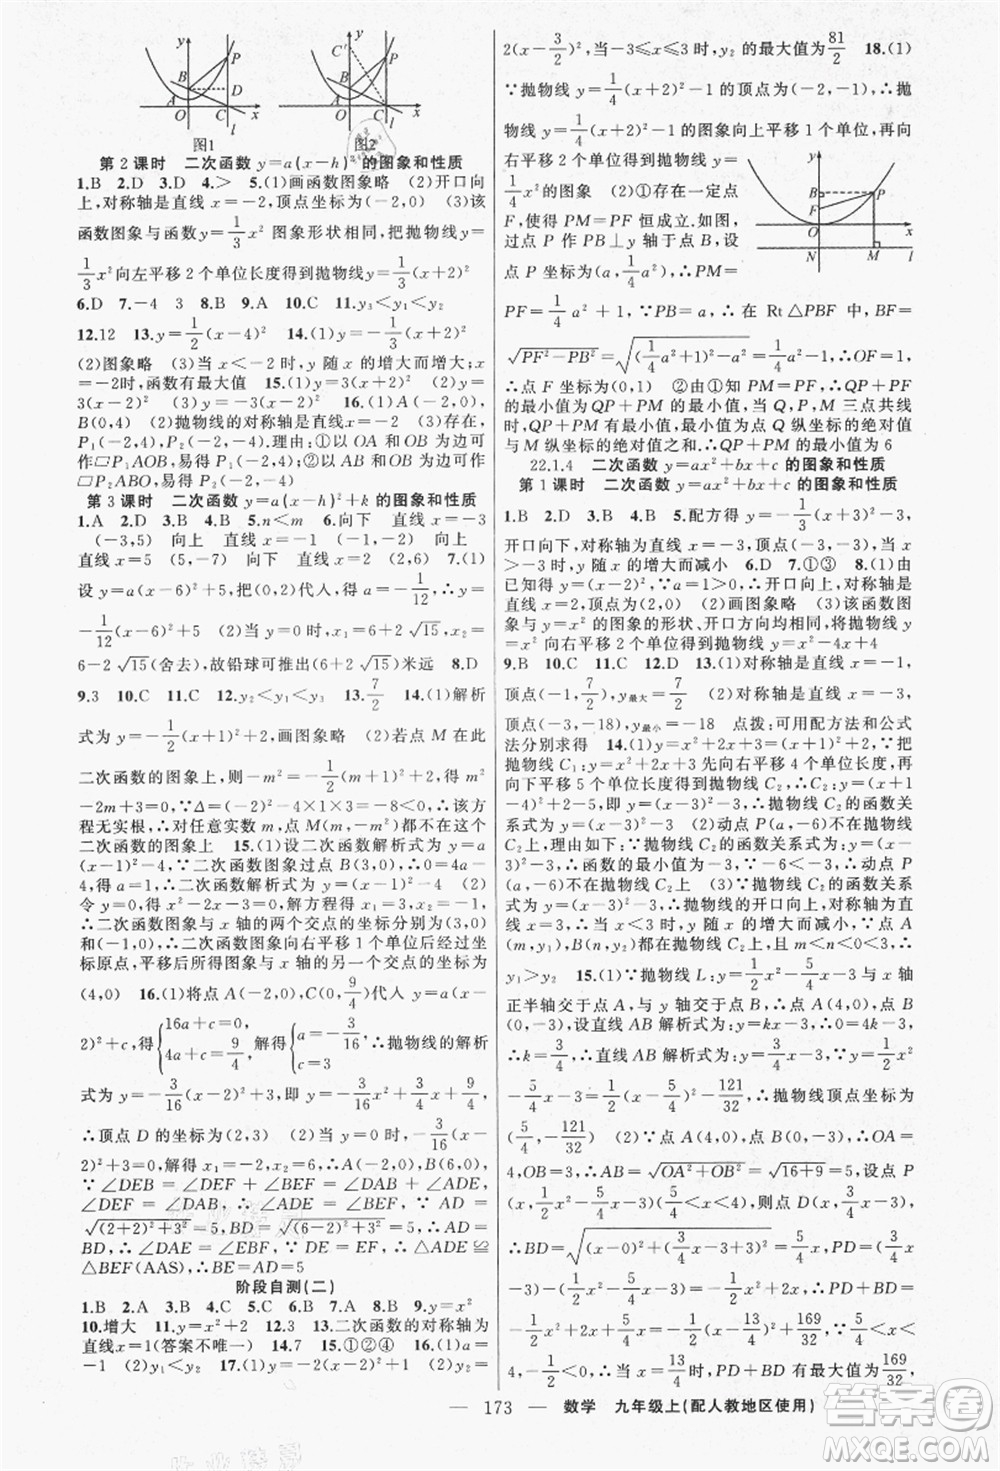 图1 图2
第2课时 二次函数 y=a(x-h)² 的图象和性质
1.B 2.D 3.D 4.> 5.(1)画函数图象略 (2)开口向
上,对称轴是直线 x=-2,顶点坐标为(-2,0) (3)该
函数图象与函数 y=1/3x² 图象形状相同,把抛物线 y=
1/3x²向左平移 2 个单位长度得到抛物线 y=1/3(x+2)²
6.D 7.-4 3 8.B 9.A 10.C 11.y₃<y₁<y₂
12.12 13.y=1/2(x-4)² 14.(1)y=-1/3(x+2)²
(2)图象略 (3)当 x<-2 时,y 随 x 的增大而增大;x
=-2时,函数有最大值 15.(1)y=3(x+2)²
(2)y=3(x-2)² (3)y=-3(x+2)² 16.(1)A(-2,0),
B(0,4) (2)抛物线的对称轴是直线x=-2 (3)存在,
P₁(-2,4),P₂(-2,-4).理由:①以 OA 和 OB 为边可
作▱P₁AOB,易得 P₁(-2,4);②以 AB 和 OB 为边可作
▱P₂ABO,易得 P₂(-2,-4)
第3课时 二次函数 y=a(x-h)²+k 的图象和性质
1.A 2.D 3.B 4.B 5.n<m 6.向下 直线x=-3
(-3,5) 向上 直线x=-1 (-1,-2) 向上
直线x=5 (5,-7) 向下 直线x=2 (2,6) 7.(1)
设 y=a(x-6)²+5,把(0,2)代人,得 a=-1/12,∴y=
-1/12(x-6)²+5 (2)当 y=0 时,x₁=6+2√15,x₂=
6-2√15(舍去),故铅球可推出(6+2√15)米远 8.D
9.3 10.C 11.C 12.y₂<y₁<y₃ 13.7/2 14.(1)解析
式为 y=-1/2(x+1)²+2,画图象略 (2)若点 M 在此
二次函数的图象上,则-m²=-1/2(m+1)²+2,得 m²
-2m+3=0,∵Δ=(-2)²-4×1×3=-8<0,∴该方
程无实根,∴对任意实数 m,点 M(m,-m²)都不在这个
二次函数的图象上 15.(1)设二次函数解析式为 y=a
(x-1)²-4,∵二次函数图象过点 B(3,0),∴0=4a-
4,得 a=1,∴二次函数解析式为 y=(x-1)²-4 (2)
令 y=0,得(x-1)²-4=0,解方程得 x₁=3,x₂=-1,
∴二次函数图象与 x 轴的两个交点的坐标分别为(3,0)
和(-1,0),∴二次函数图象向右平移 1 个单位后经过坐
标原点,平移后所得图象与 x 轴的另一个交点的坐标为
(4,0) 16.(1)将点 A(-2,0),C(0,9/4)代人 y=a(x-
2)²+c,得{16a+c=0, 4a+c=9/4, 解得{a=-3/16, c=3 ∴抛物线的解析
式为 y=-3/16(x-2)²+3,即 y=-3/16x²+3/4x+9/4,
∴顶点 D 的坐标为(2,3) (2)当 y=0 时,-3/16(x-
2)²+3=0,解得 x₁=-2,x₂=6,∴A(-2,0),B(6,0),
∵∠DEB=∠DEF+∠BEF=∠DAB+∠ADE,
∠DEF=∠DAB,∴∠ADE=∠BEF.∵AD=
√(2+2)²+3²=5,BD=√(6-2)²+3²=5,∴AD=
BD,∴∠DAE=∠EBF.∵DE=EF,∴△ADE≌
△BEF(AAS),∴BE=AD=5
阶段自测(二)
1.B 2.A 3.D 4.C 5.C 6.D 7.A 8.B 9.y=x²
10.增大 11.y=x²+2 12.1 13.二次函数的对称轴为
直线x=1(答案不唯一) 14.7 15.①②④ 16.(1)a=
-1 (2)y₁<y₂ 17.(1)y=-1/2(x-2)² (2)y=-
2(x-3/2)²,当-3≤x≤3 时,y₂ 的最大值为81/2 18.(1)
∵抛物线 y=1/4x²-1 的顶点为(0,-1),∴此抛
物线 y=1/4x²-1 的图象向上平移 1 个单位,再向
右平移 2 个单位得到抛物线 y=
1/4x²的图象 (2)①存在一定点
F,使得 PM=PF 恒成立.如图,
过点 P 作 PB⊥y 轴于点 B,设
点 P 坐标为(a,1/4a²),∴PM=
PF=1/4a²+1,∵PB=a,∴在 Rt△PBF 中,BF=
√PF²-PB²=√(1/4a²+1)²-a²=1/4a²-1,∴OF=1,
∴点 F 坐标为(0,1) ②由①知 PM=PF,∴QP+PF
的最小值为 QP+PM 的最小值,当 Q,P,M 三点共线
时,QP+PM 有最小值,最小值为点 Q 纵坐标的绝对值
与 M 纵坐标的绝对值之和.∴QP+PM 的最小值为 6
22.1.4 二次函数 y=ax²+bx+c 的图象和性质
第1课时 二次函数 y=ax²+bx+c 的图象和性质
1.B 2.D 3.A 4.B 5.配方得 y=-1/3(x+3)²-3,
开口向下,对称轴为直线 x=-3,顶点(-3,-3),当 x>
-3 时,y 随 x 的增大而减小 6.D 7.①③ 8.(1)由
已知得 y=(x-2)²,∵a=1>0,∴开口向上,对称轴是
直线 x=2,顶点为(2,0) (2)画图象略 (3)该函数图
象与 y=x² 的图象的形状、开口方向均相同,将抛物线
y=x² 向右平移 2 个单位得到抛物线 y=x²-4x+4
9.B 10.C 11.D 12.A 13.(1)对称轴是直线x=-1,
顶点(-1,7/2),y最大=7/2 (2)对称轴是直线 x=-3,
顶点(-3,-18),y最小=-18 点拨:可用配方法和公式
法分别求得 14.(1)y=x²+2x=(x+1)²-1,∵把
抛物线 C₁:y=x²+2x先向右平移 4 个单位长度,再
向下平移 5 个单位长度得到抛物线 C₂,∴C₂:y=(x+1
-4)²-1-5=(x-3)²-6,∴抛物线 C₂ 的函数关
系式为 y=(x-3)²-6 (2)动点 P(a,-6)不在抛物线
C₂ 上,理由如下:∵抛物线 C₂ 的函数关系式为:y=(x
-3)²-6,∴函数的最小值为-6,∵-6=-6,∴动点 P
(a,-6)不在抛物线 C₂ 上 (3)∵抛物线 C₂ 的函数关系
式为:y=(x-3)²-6,∴抛物线的开口向上,对称轴为
x=3,∴当 x<3 时,y 随 x 的增大而减小,∵点 A
(m,y₁),B(n,y₂)都在抛物线 C₂ 上,且 m<n<0<3,∴
y₁>y₂ 15.(1)∵抛物线 L:y=1/2x²-5/4x-3 与 x 轴
正半轴交于点 A,与 y 轴交于点 B,∴点 A(4,0),点 B
(0,-3),设直线 AB 解析式为:y=kx-3,∴0=4k-3,
∴k=3/4,∴直线 AB 解析式为:y=3/4x-3,∵y=1/2x²-
5/4x-3=1/2(x-5/4)²-121/32,∴抛物线顶点坐标为
(5/4,-121/32) (2)∵点 A(4,0),点 B(0,-3),∴OA=
4,OB=3,∴AB=√OA²+OB²=√16+9=5,设点 P
(x,1/2x²-5/4x-3)(5/4<x<4),则点 D(x,3/4x-3),
∴BD=√(x-0)²+(3/4x-3+3)²=5/4x,PD=(3/4x
-3)-(1/2x²-5/4x-3)=-1/2x²+2x,∴PD+BD=
-1/2x²+2x+5/4x=-1/2(x-13/4)²+169/32,∵5/4<x<
4,-1/2<0,∴当 x=13/4时,PD+BD 有最大值为169/32
— 173 — 数学 九年级上(配人教地区使用)
答案圈
MXQE.COM